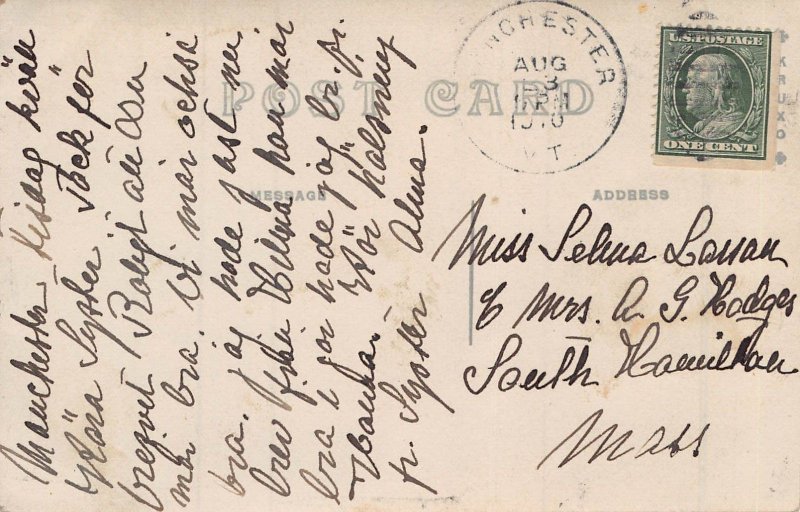 POST CARD
MANCHESTER
AUG
3
1910
VT
U.S. POSTAGE
ONE CENT
KRUXO
MESSAGE
ADDRESS
Manchester tisdag kväll
Kära Syster Tack för
brefvet Roligt att Du
mår bra. Vi mår ochså
bra. Jag hade just nu
bref från Hilma, hon mår
bra i går hade jag br. fr.
Hanna. Kär halsning
fr. Syster Alma.
Miss Selma Larson
% Mrs. A G. Hodges
South Hamilton
Mass